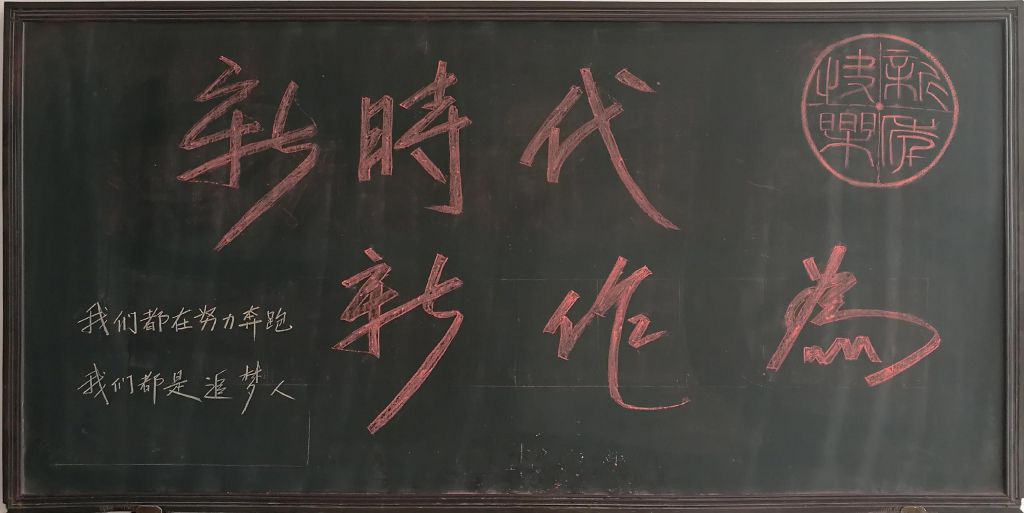 新時代
新作為
我们都在努力奔跑
我们都是追梦人
新年快樂